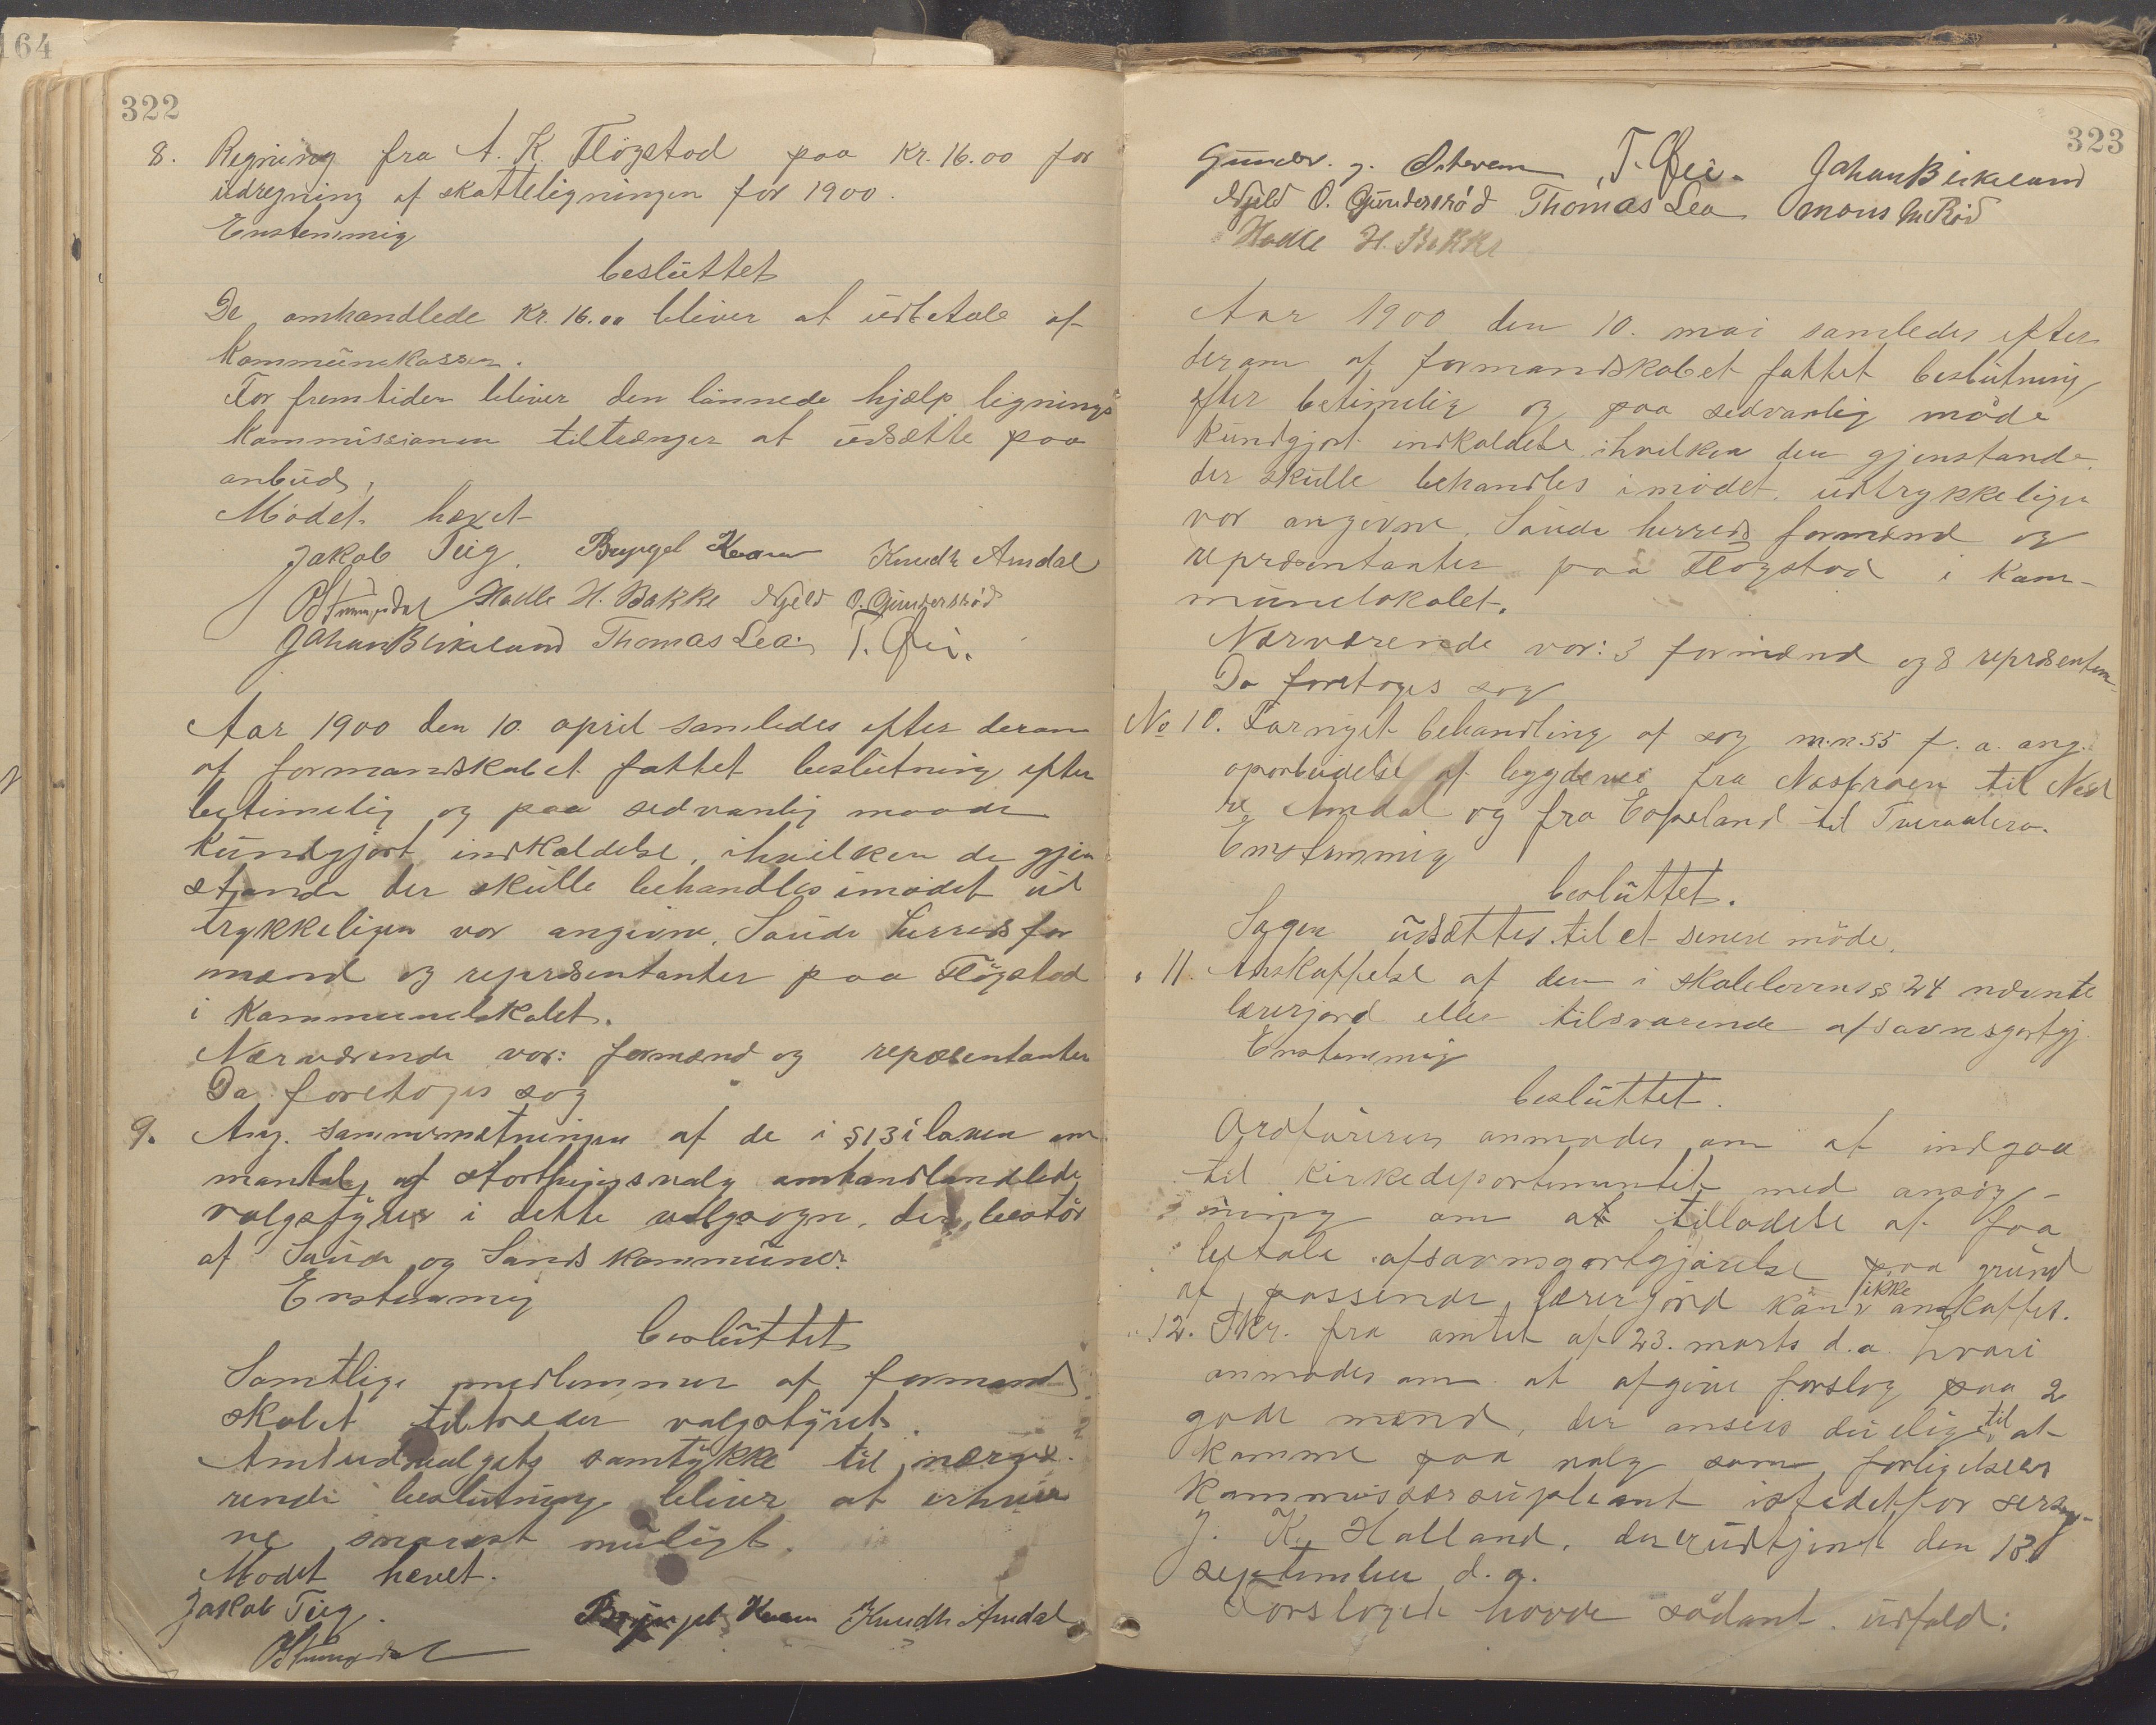 164
322
8. Regning fra A. K. Flögstad paa Kr. 16.00 for
udregning af skatteligningen for 1900.
Enstemmig
beslüttet
De omhandlede Kr. 16.00 bliver at üdbetale af
Kommünekassen.
For fremtiden bliver den lönnede hjælp lignings
Kommissionen tiltrænger at üdsætte paa
anbüd,
Mödet hævet
Jakob Tüg. Bryngel Kvam Knudt Amdal
Hadle H. Bakke Njeld O. Gündersröd
Johan Birkeland Thomas Lea. T. Øie.
Aar 1900 den 10. april samledes efter deram
af formandskabet fattet beslütning efter
betimelig og paa sedvanlig maade
Kündgjort indkaldelse, ihvilken de gjen
stande der skülle behandles imödet üd
trykkeligen var angivne, Saude herreds for
mænd og repræsentanter paa Flögstad
i Kommunelokalet.
Nærværende var: formænd og repæsentanter
Da foretoges sag
9. Ang. sammensætningen af de i § 13 i loven om
mantal og storthingsvalg omhandlendlede
valgstyrer i dette valgsogn, der bestör
af Saude og Sands kommüner.
Enstemmig
beslüttet
Samtlige medlemmer af formand
skabet tiltræder valgstyret.
Amtudvalgets samtykke til nærvæ-
rende beslutning bliver at erhver
ve snarest müligt.
Mödet hævet.
Jakob Tüg.
Bryngel Kvam Knudt Amdal
323
Gunder. g. T. Øie. Johan Birkeland
Njeld O. Gündersröd Thomas Lea Mons M Röd
Hadle H. Bakke
Aar 1900 den 10. mai samledes efter
deram af formandskabet fattet beslütning
efter betimelig og paa sedvanlig måde
Kündgjort indkaldelse ihvilken den gjenstande
der skülle behandles imödet üdtrykkeligen
var angivne, Saude herreds formænd og
repræsentanter paa Flögstad i Kom-
münelokalet.
Nærværende var: 3 formænd og 8 repræsentan-
Da foretoges sag
No 10. Fornyet behandling af sag m.n. 55 f. a. ang.
oparbeidelse af bygdevei fra Næsbraen til Ned
re Amdal og fra Espeland til Tveraateraa.
Enstemmig
beslüttet.
Sagen üdsættes til et senere möde.
" 11. Anskaffelse af den i skolelovens § 24 nævnte
lærerjord eller tilsvarende afsavnsgodtgj.
Enstemmig
beslüttet.
Ordföreren anmodes om at indgaa
til Kirkedepartementet med ansög-
ning om at tilladelse at faa
betale afsavnsgodtgjörelse paa gründ
af passende lærerjord kan ikke anskaffes.
" 12. Skr. fra amtet af 23. marts d.a. hvori
anmodes om at afgive forslag paa 2
gode mænd, der ansees düelige til at
komme paa valg som forligelses
kommissærsüpleant istedetfor sersj.
J. K. Halland, der er üdtjent den 18
september d.a.
Forslaget havde sådant üdfald: